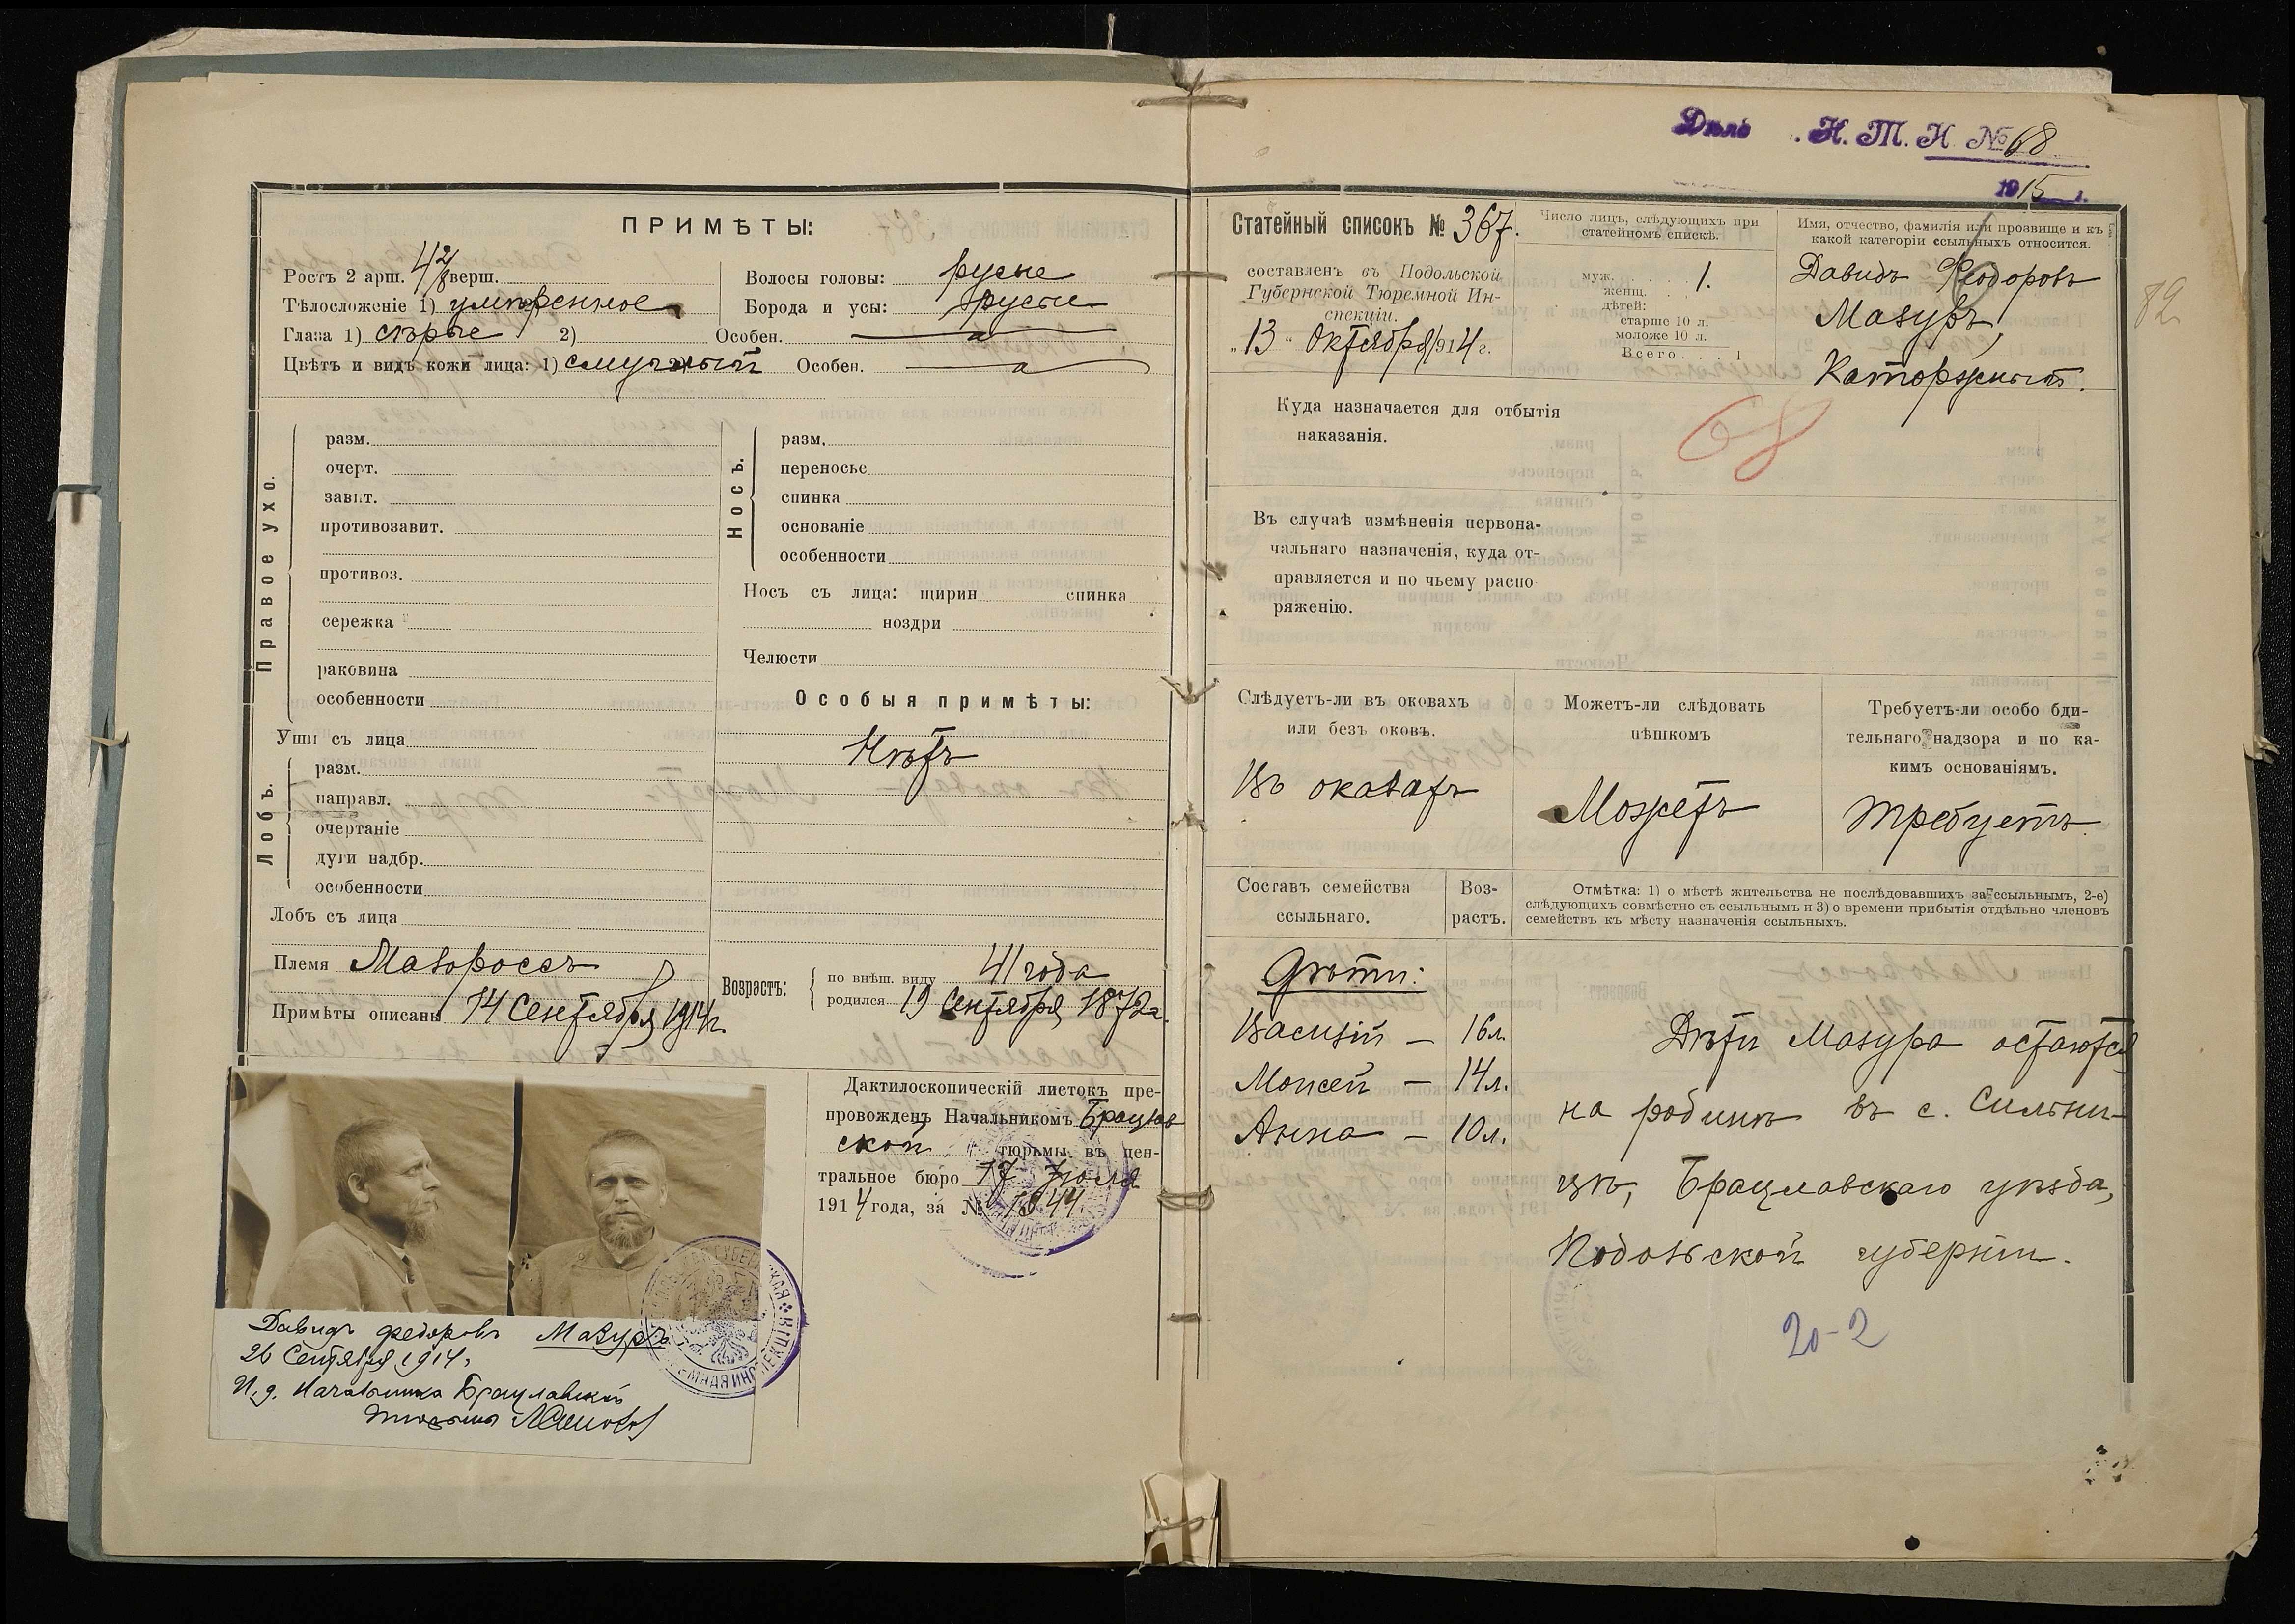 ПРИМѢТЫ:
Ростъ 2 арш. 4 2/8 верш.
Тѣлосложеніе 1) умѣренное
Глаза 1) сѣрые 2) Особен.
Цвѣтъ и видъ кожи лица: 1) смуглый Особен.
Волосы головы: русые
Борода и усы: русые
Правое ухо.
разм.
очерт.
завит.
противозавит.
противоз.
сережка
раковина
особенности
Уши съ лица
Лобъ.
разм.
направл.
очертаніе
дуги надбр.
особенности
Лобъ съ лица
Носъ.
разм.
переносье
спинка
основаніе
особенности
Носъ съ лица: щирин спинка
ноздри
Челюсти
Особыя примѣты:
Нѣтъ
Племя Малороссъ
Примѣты описаны 14 Сентября 1914 г.
Возрастъ:
по внѣш. виду 41 года
родился 19 Сентября 1872 г.
Дактилоскопическій листокъ пре-
провожденъ Начальникомъ Брацлав
ской тюрьмы въ цен-
тральное бюро 17 Іюля
1914 года, за № 1044.
Давидъ Федоровъ Мазуръ
26 Сентября 1914 г.
И. д. Начальника Брацлавской
тюрьмы
Дѣло . Н. Т. Н № 68
1915 г.
82
Статейный списокъ № 367.
составленъ въ Подольской
Губернской Тюремной Ин-
спекціи.
„13" Октября 1914 г.
Число лицъ, слѣдующихъ при
статейномъ спискѣ.
муж. . . . 1.
женщ. . .
дѣтей:
старше 10 л.
моложе 10 л.
Всего . . . 1
Имя, отчество, фамилія или прозвище и къ
какой категоріи ссыльныхъ относится.
Давидъ Ѳеодоровъ
Мазуръ,
Каторжный.
Куда назначается для отбытія
наказанія.
68
Въ случаѣ измѣненія первона-
чальнаго назначенія, куда от-
правляется и по чьему распо
ряженію.
Слѣдуетъ-ли въ оковахъ
или безъ оковъ.
Въ оковахъ
Можетъ-ли слѣдовать
пѣшкомъ
Можетъ
Требуетъ-ли особо бди-
тельнаго надзора и по ка-
кимъ основаніямъ.
Требуетъ
Составъ семейства
ссыльнаго.
Воз-
растъ.
Отмѣтка: 1) о мѣстѣ жительства не послѣдовавшихъ за ссыльнымъ, 2-е)
слѣдующихъ совмѣстно съ ссыльнымъ и 3) о времени прибытія отдѣльно членовъ
семействъ къ мѣсту назначенія ссыльныхъ.
Дѣти:
Василій — 16 л.
Моисей — 14 л.
Анна — 10 л.
Дѣти Мазура остаются
на родинѣ въ с. Сильни-
цѣ, Брацлавскаго уѣзда,
Подольской губерніи.
20-2